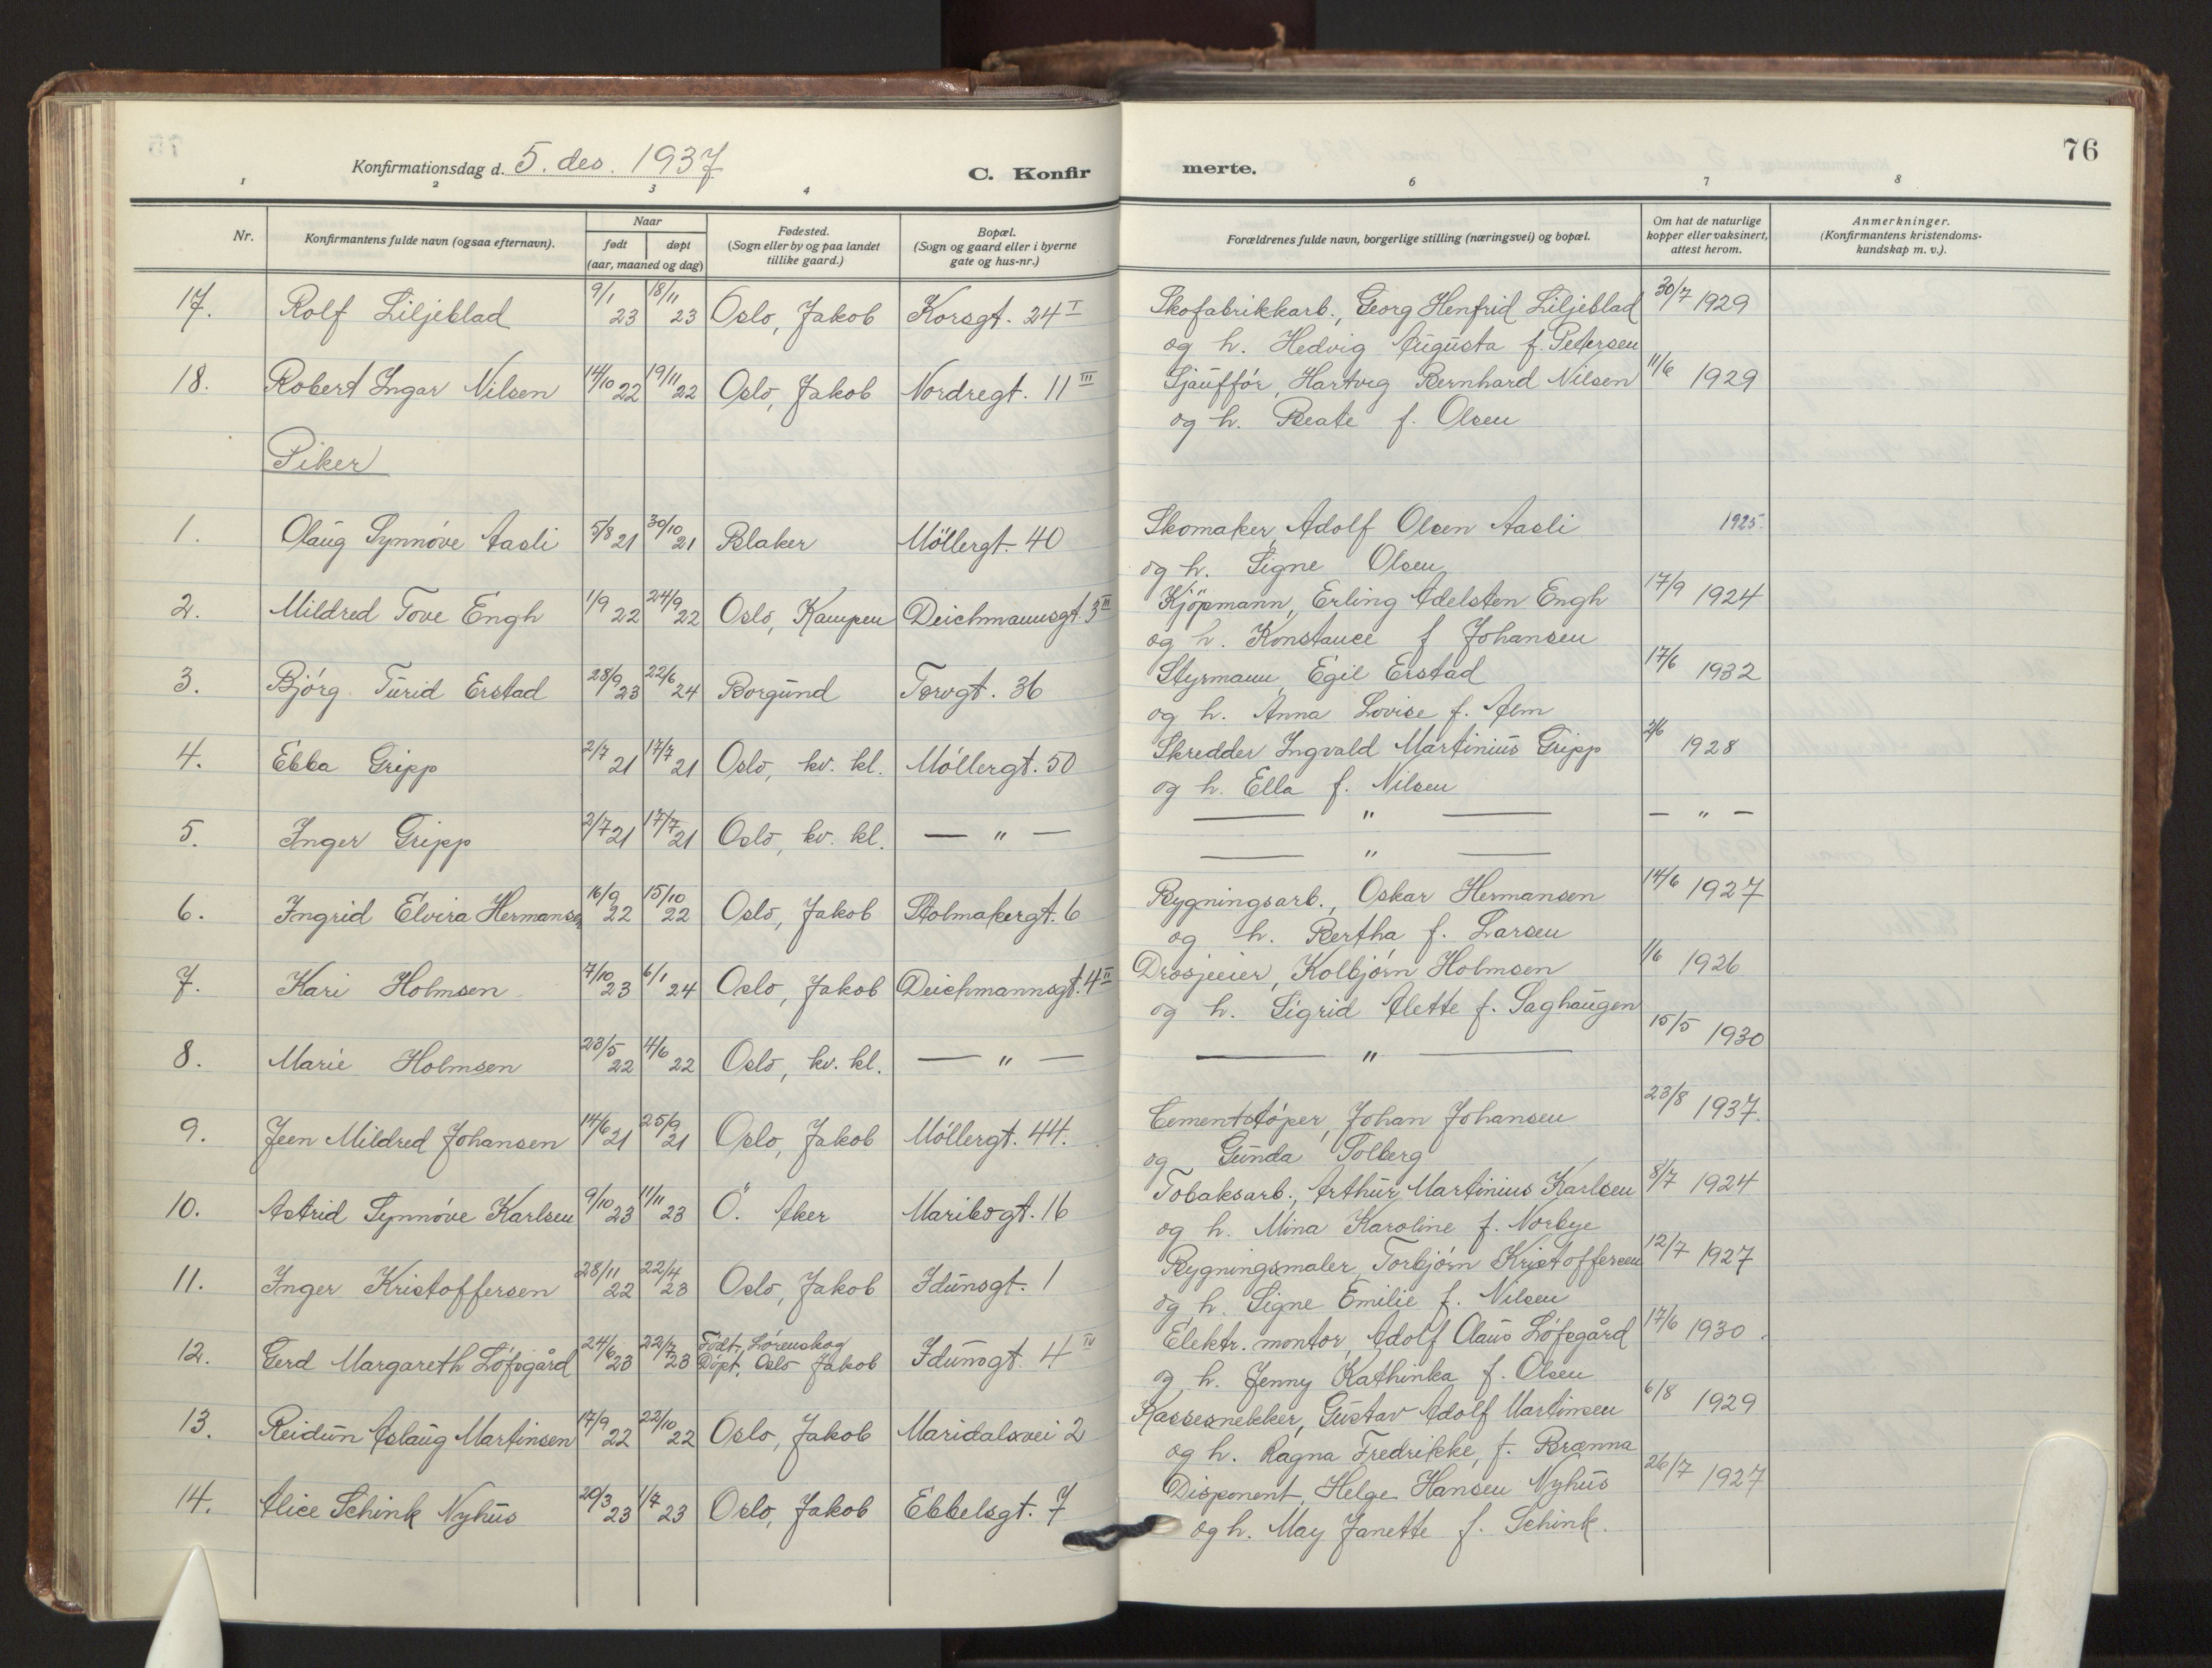 76
Konfirmationsdag d. 5. des. 1937
C. Konfir merte.
1 2 3 4 6 7 8
Nr.
Konfirmantens fulde navn (ogsaa efternavn).
Naar
født døpt
(aar, maaned og dag)
Fødested.
(Sogn eller by og paa landet
tillike gaard.)
Bopæl.
(Sogn og gaard eller i byerne
gate og hus-nr.)
Forældrenes fulde navn, borgerlige stilling (næringsvei) og bopæl.
Om hat de naturlige
kopper eller vaksinert,
attest herom.
Anmerkninger.
(Konfirmantens kristendoms-
kundskap m. v.).
17. Rolf Liljeblad 9/1 23 18/11 23 Oslo, Jakob Korsgt. 24 I Skofabrikkarb., Georg Henfrid Liljeblad 30/7 1929
og h. Hedvig Augusta f. Petersen
18. Robert Ingar Nilsen 14/10 22 19/11 22 Oslo, Jakob Nordregt. 11 III Sjaufför, Hartvig Bernhard Nilsen 11/6 1929
og h. Beate f. Olsen
Piker
1. Olaug Synnöve Aasli 5/8 21 30/10 21 Blaker Möllergt. 40 Skomaker, Adolf Olsen Aasli 1925
og h. Signe Olsen
2. Mildred Tove Engh 1/9 22 24/9 22 Oslo, Kampen Deichmannsgt. 3 III Kjöpmann, Erling Adelsten Engh 17/9 1924
og h. Konstance f Johansen
3. Björg Turid Erstad 28/9 23 22/6 24 Borgund Torvgt. 36 Styrmann, Egil Erstad 17/6 1932
og h. Anna Lovise f. Alm
4. Ebba Gripp 2/7 21 17/7 21 Oslo, kv. kl. Möllergt. 50 Skredder Ingvald Martinius Gripp 2/6 1928
og h. Ella f. Nilsen
5. Inger Gripp 2/7 21 17/7 21 Oslo, kv. kl. — " — — " — — " —
— " —
6. Ingrid Elvira Hermansen 16/9 22 15/10 22 Oslo, Jakob Stolmakergt. 6 Bygningsarb., Oskar Hermansen 14/6 1927
og h. Bertha f. Larsen
7. Kari Holmsen 7/10 23 6/1 24 Oslo, Jakob Deichmannsgt. 4 II Drosjeeier, Kolbjörn Holmsen 1/6 1926
og h. Sigrid Alette f. Saghaugen
8. Marie Holmsen 23/5 22 4/6 22 Oslo, kv. kl. — " — — " — 15/5 1930
9. Jeen Mildred Johansen 14/6 21 25/9 21 Oslo, Jakob Möllergt. 44. Cementstöper, Johan Johansen 23/8 1937.
og Gunda Solberg
10. Astrid Synnöve Karlsen 9/10 23 11/11 23 Ö. Aker Maribogt. 16 Tobaksarb., Arthur Martinius Karlsen 8/7 1924
og h. Mina Karoline f. Norbye
11. Inger Kristoffersen 28/11 22 22/4 23 Oslo, Jakob Idunsgt. 1 Bygningsmaler, Torbjörn Kristoffersen 12/7 1927
og h. Signe Emilie f. Nilsen
12. Gerd Margareth Löfsgård 24/6 23 22/7 23 Födt, Lörenskog Döpt, Oslo Jakob Idunsgt. 4 IV Elektr. montör, Adolf Olaus Löfsgård 17/6 1930.
og h. Jenny Kathinka f. Olsen
13. Reidun Aslaug Martinsen 17/9 22 22/10 22 Oslo, Jakob Maridalsvei 2 Kassesnekker, Gustav Adolf Martinsen 6/8 1929
og h. Ragna Fredrikke, f. Brænna
14. Alice Schink Nyhus 20/3 23 1/7 23 Oslo, Jakob Ebbelsgt. 7 Disponent, Helge Hansen Nyhus 26/7 1927
og h. May Janette f. Schink.